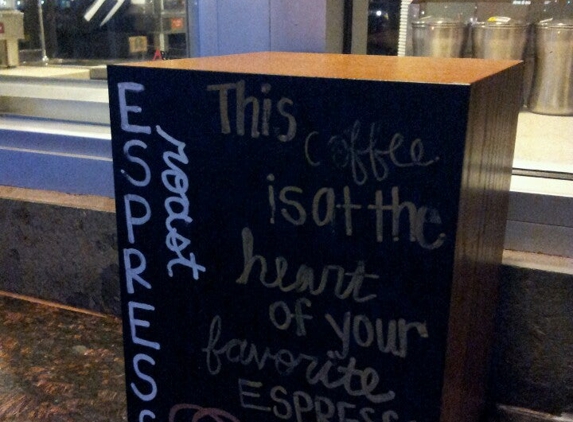 ESPRESS
roast
This
coffee
is at the
heart
of your
favorite
ESPRESS